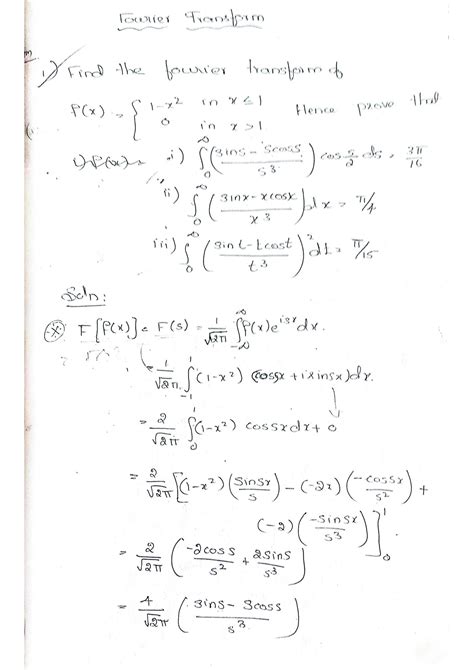 Fourier Transform
1) Find the fourier transform of
f(x) = { 1-x² in x ≤ 1
0 in x > 1 Hence prove that
i) ∫₀^∞ (sins - scoss / s³) cos s/2 ds = 3π/16
ii) ∫₀^∞ (sinx - xcosx / x³) dx = π/4
iii) ∫₀^∞ (sint - tcost / t³)² dt = π/15
Soln:
F[f(x)] = F(s) = 1/√2π ∫_{-∞}^{∞} f(x) e^{isx} dx.
= 1/√2π ∫_{-1}^{1} (1-x²) (cossx + i sinsx) dx.
= 2/√2π ∫₀¹ (1-x²) cossx dx + 0
= 2/√2π [(1-x²) (sinsx / s) - (-2x) (-cossx / s²) +
(-2) (-sinsx / s³)]₀¹
= 2/√2π (-2coss / s² + 2sins / s³)
= 4/√2π (sins - scoss / s³)